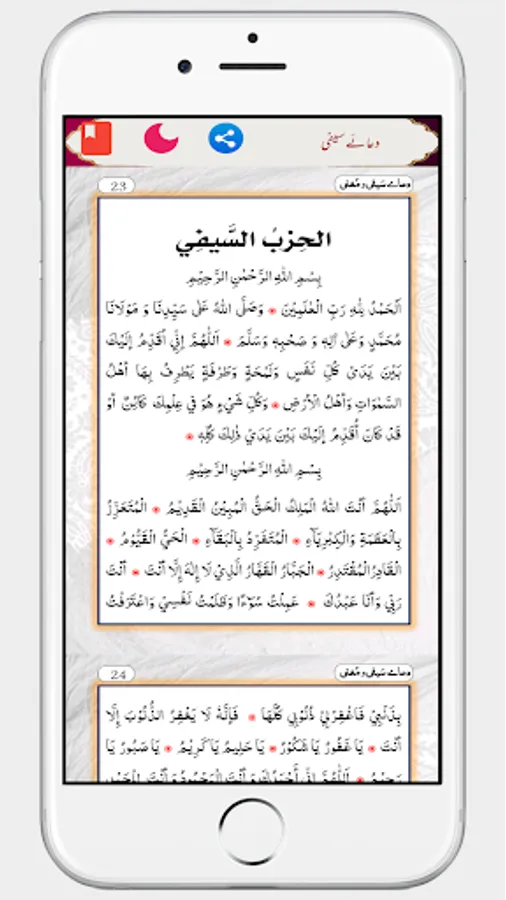 دعائے سیفی
دعائے سیفی و مغنی
23
الحِزبُ السَّيفِي
بِسْمِ اللهِ الرَّحْمٰنِ الرَّحِيْمِ
اَلْحَمْدُ لِلّٰهِ رَبِّ الْعٰلَمِيْنَ * وَصَلَّى اللهُ عَلٰى سَيِّدِنَا وَ مَوْلَانَا
مُحَمَّدٍ وَعَلٰى اٰلِهٖ وَ صَحْبِهٖ وَسَلَّمَ * اَللّٰهُمَّ اِنِّيْ اُقَدِّمُ اِلَيْكَ
بَيْنَ يَدَيْ كُلِّ نَفَسٍ وَلَمْحَةٍ وَطَرْفَةٍ يَطْرِفُ بِهَا اَهْلُ
السَّمٰوَاتِ وَاَهْلُ الْاَرْضِ * وَكُلِّ شَيْءٍ هُوَ فِيْ عِلْمِكَ كَائِنٌ اَوْ
قَدْ كَانَ اُقَدِّمُ اِلَيْكَ بَيْنَ يَدَيْ ذٰلِكَ كُلِّهٖ *
بِسْمِ اللهِ الرَّحْمٰنِ الرَّحِيْمِ
اَللّٰهُمَّ اَنْتَ اللهُ الْمَلِكُ الْحَقُّ الْمُبِيْنُ الْقَدِيْمُ * الْمُتَعَزِّزُ
بِالْعَظَمَةِ وَالْكِبْرِيَآءِ * الْمُتَفَرِّدُ بِالْبَقَآءِ * الْحَيُّ الْقَيُّوْمُ *
الْقَادِرُ الْمُقْتَدِرُ * الْجَبَّارُ الْقَهَّارُ الَّذِيْ لَا اِلٰهَ اِلَّا اَنْتَ * اَنْتَ
رَبِّيْ وَاَنَا عَبْدُكَ * عَمِلْتُ سُوْءًا وَظَلَمْتُ نَفْسِيْ وَاعْتَرَفْتُ
دعائے سیفی و مغنی
24
بِذَنْبِيْ فَاغْفِرْلِيْ ذُنُوْبِيْ كُلَّهَا * فَاِنَّهٗ لَا يَغْفِرُ الذُّنُوْبَ اِلَّا
اَنْتَ * يَا غَفُوْرُ يَا شَكُوْرُ * يَا حَلِيْمُ يَا كَرِيْمُ * يَا صَبُوْرُ يَا
رَحِيْمُ * اَللّٰهُمَّ اِنِّيْ اَحْمَدُكَ وَاَنْتَ الْمَحْمُوْدُ وَاَنْتَ لِلْحَمْدِ